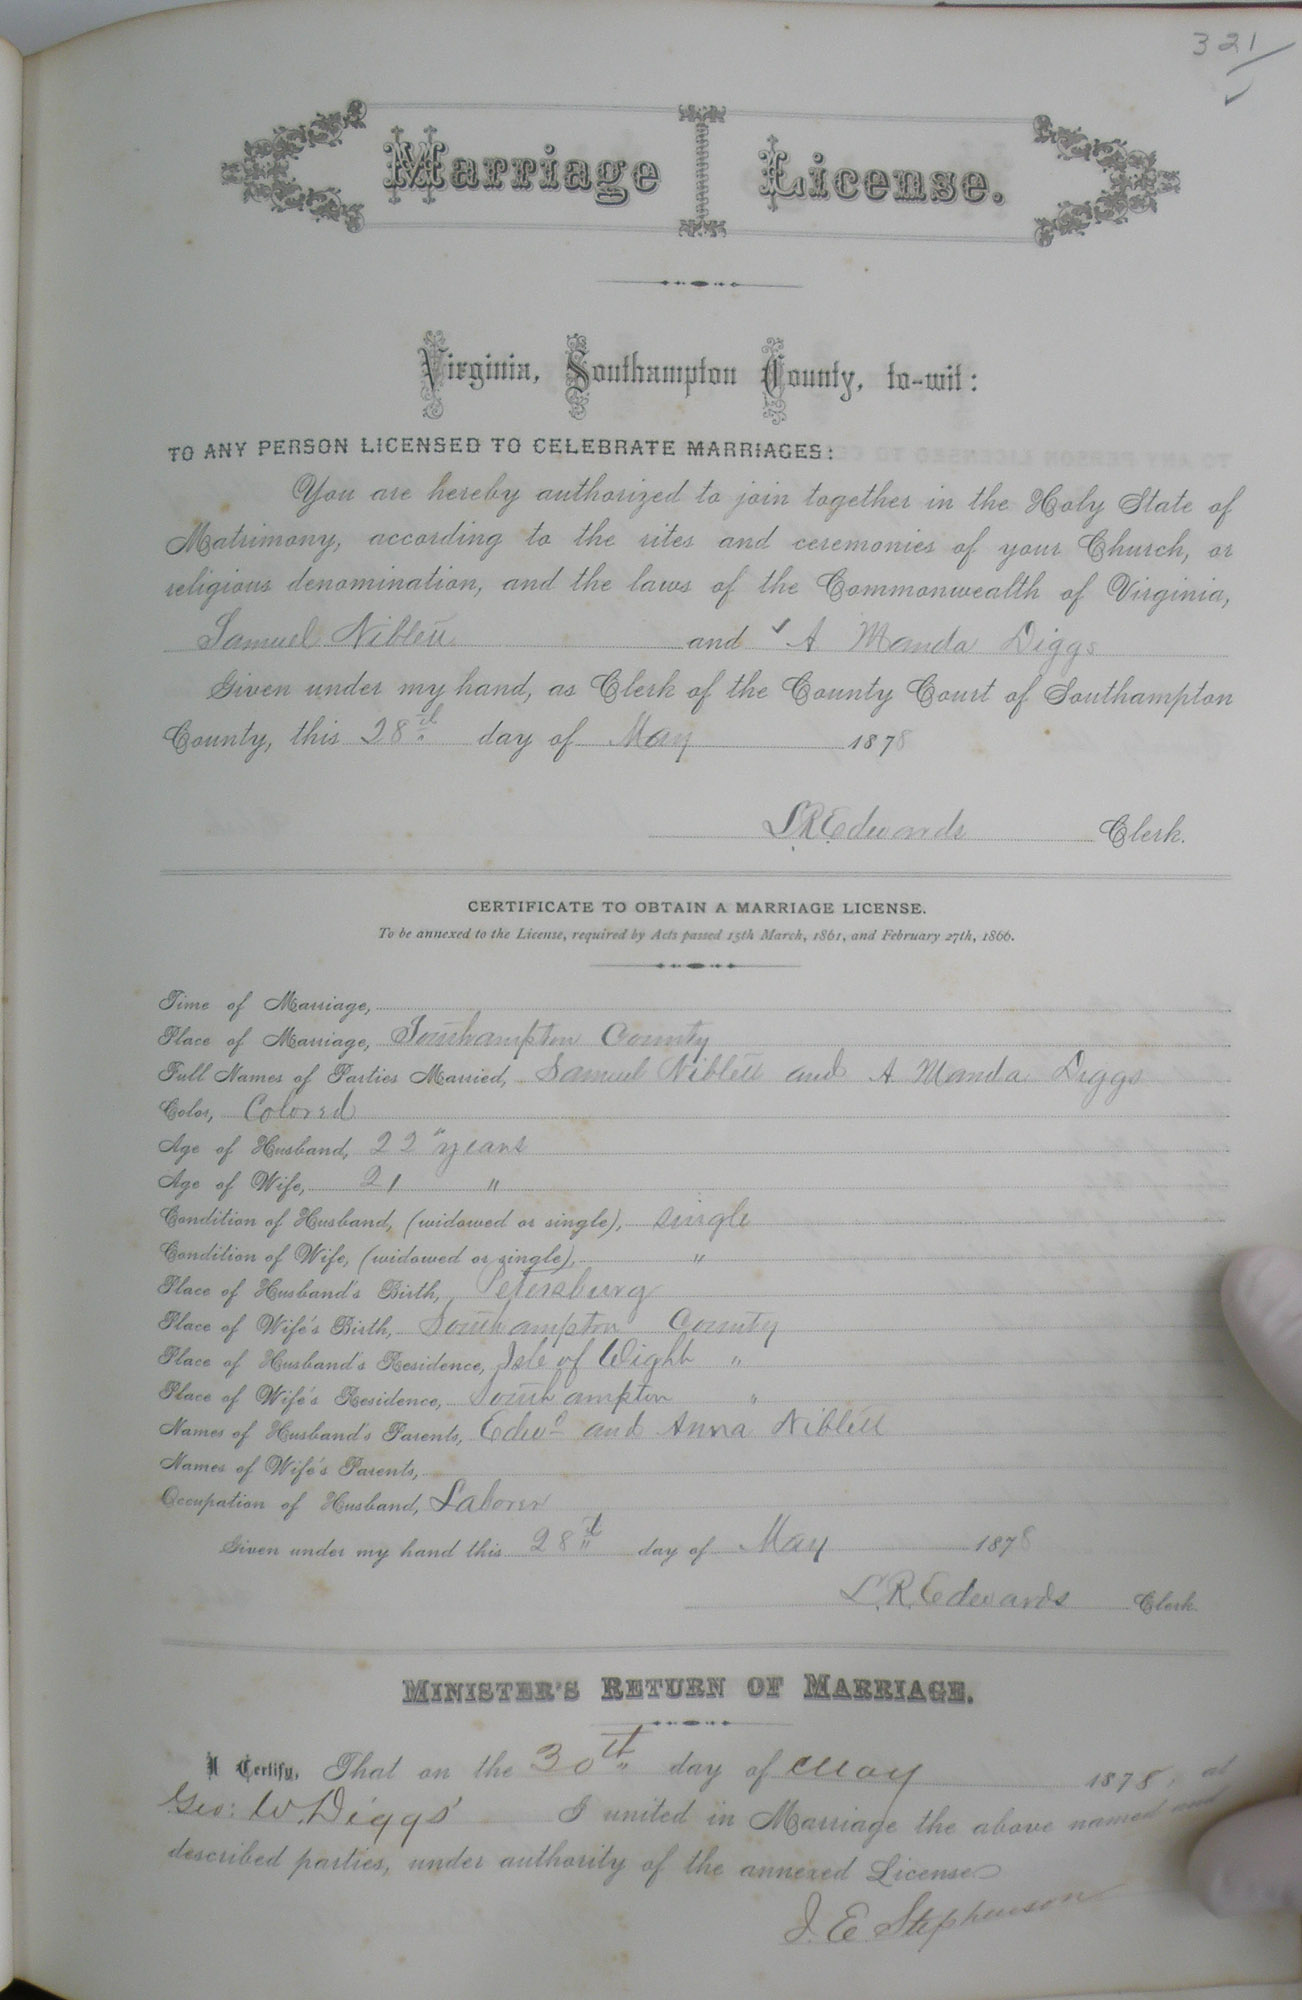 321
Marriage License.
Virginia, Southampton County, to-wit:
TO ANY PERSON LICENSED TO CELEBRATE MARRIAGES:
You are hereby authorized to join together in the Holy State of
Matrimony, according to the rites and ceremonies of your Church, or
religious denomination, and the laws of the Commonwealth of Virginia,
Samuel Niblett and ✓ A Manda Diggs
Given under my hand, as Clerk of the County Court of Southampton
County, this 28th day of May 1878
L.R. Edwards Clerk.
CERTIFICATE TO OBTAIN A MARRIAGE LICENSE.
To be annexed to the License, required by Acts passed 15th March, 1861, and February 27th, 1866.
Time of Marriage,
Place of Marriage, Southampton County
Full Names of Parties Married, Samuel Niblett and A Manda Diggs
Color, Colored
Age of Husband, 22 years
Age of Wife, 21 "
Condition of Husband, (widowed or single), single
Condition of Wife, (widowed or single), "
Place of Husband's Birth, Petersburg
Place of Wife's Birth, Southampton County
Place of Husband's Residence, Isle of Wight "
Place of Wife's Residence, Southampton "
Names of Husband's Parents, Edwd and Anna Niblett
Names of Wife's Parents,
Occupation of Husband, Laborer
Given under my hand this 28th day of May 1878
L.R. Edwards Clerk.
MINISTER'S RETURN OF MARRIAGE.
I Certify, That on the 30th day of May 1878, at
Geo: W. Diggs' I united in Marriage the above named and
described parties, under authority of the annexed License
J. E. Stephenson